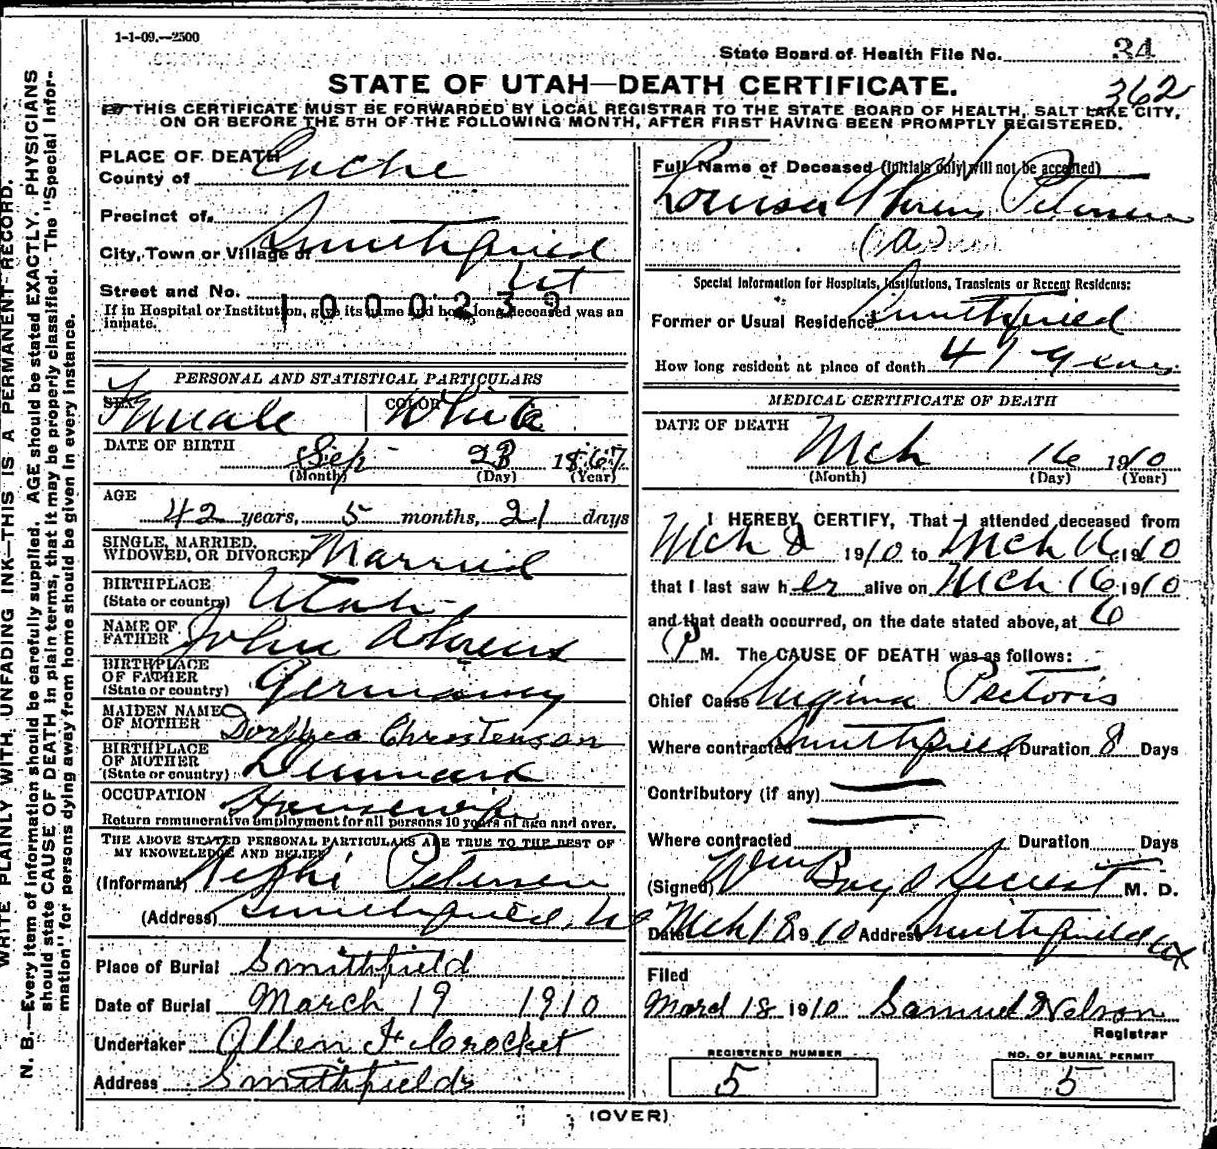 1-1-09.—2500
State Board of Health File No. 34
362
STATE OF UTAH—DEATH CERTIFICATE.
THIS CERTIFICATE MUST BE FORWARDED BY LOCAL REGISTRAR TO THE STATE BOARD OF HEALTH, SALT LAKE CITY,
ON OR BEFORE THE 5TH OF THE FOLLOWING MONTH, AFTER FIRST HAVING BEEN PROMPTLY REGISTERED.
WRITE PLAINLY WITH UNFADING INK—THIS IS A PERMANENT RECORD.
N. B.—Every item of information should be carefully supplied. AGE should be stated EXACTLY. PHYSICIANS
should state CAUSE OF DEATH in plain terms, that it may be properly classified. The "Special Infor-
mation" for persons dying away from home should be given in every instance.
PLACE OF DEATH
County of Cache
Precinct of
City, Town or Village of Smithfield
Ut
Street and No.
1000239
If in Hospital or Institution, give its name and how long deceased was an
inmate.
PERSONAL AND STATISTICAL PARTICULARS
SEX Female COLOR White
DATE OF BIRTH Sep 23 1867
(Month) (Day) (Year)
AGE
42 years, 5 months, 21 days
SINGLE, MARRIED,
WIDOWED, OR DIVORCED Married
BIRTHPLACE
(State or country) Utah
NAME OF
FATHER John Ahrens
BIRTHPLACE
OF FATHER
(State or country) Germany
MAIDEN NAME
OF MOTHER Dorthea Christenson
BIRTHPLACE
OF MOTHER
(State or country) Denmark
OCCUPATION Housewife
Return remunerative employment for all persons 10 years of age and over.
THE ABOVE STATED PERSONAL PARTICULARS ARE TRUE TO THE BEST OF
MY KNOWELEDGE AND BELIEF
(Informant) Nephi Petersen
(Address) Smithfield, U
Place of Burial Smithfield
Date of Burial March 19 1910
Undertaker Allen F Crocket
Address Smithfield
Full Name of Deceased (Initials only will not be accepted)
Louisa Ahrens Petersen
(a)
Special Information for Hospitals, Institutions, Transients or Recent Residents:
Former or Usual Residence Smithfield
How long resident at place of death 41 years
MEDICAL CERTIFICATE OF DEATH
DATE OF DEATH
Mch 16 1910
(Month) (Day) (Year)
I HEREBY CERTIFY, That I attended deceased from
Mch 8 1910 to Mch 16 1910
that I last saw her alive on Mch 16 1910
and that death occurred, on the date stated above, at 6
P M. The CAUSE OF DEATH was as follows:
Chief Cause Angina Pectoris
Where contracted Smithfield Duration 8 Days
Contributory (if any)
Where contracted Duration Days
(Signed) M. D.
Date Mch 18 1910 Address Smithfield Ut
Filed
March 18 1910 Samuel Nelson
Registrar
REGISTERED NUMBER
5
NO. OF BURIAL PERMIT
5
(OVER)